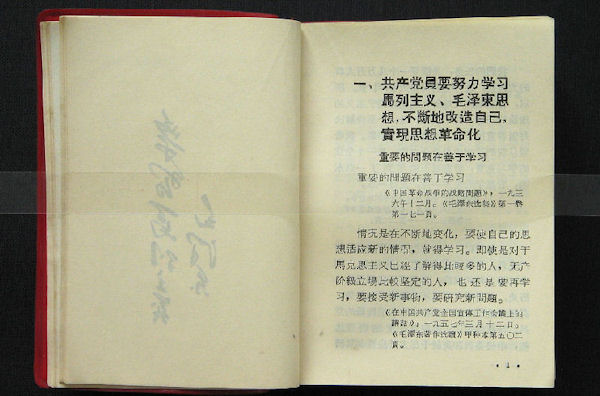 一、共产党員要努力学习
馬列主义、毛泽東思
想，不断地改造自己，
實現思想革命化
重要的問題在善于学习
重要的問題在善于学习
《中国革命战争的战略問題》，一九三
六年十二月。《毛泽东选集》第一卷
第一七一頁。
情况是在不断地变化，要使自己的思
想适应新的情况，就得学习。即使是对于
馬克思主义已經了解得比較多的人，无产
阶級立場比較坚定的人，也还是要再学
习，要接受新事物，要研究新問題。
《在中国共产党全国宣传工作会議上的
講話》，一九五七年三月十二日。
《毛泽东著作选讀》甲种本第五〇二
頁。
· 1 ·